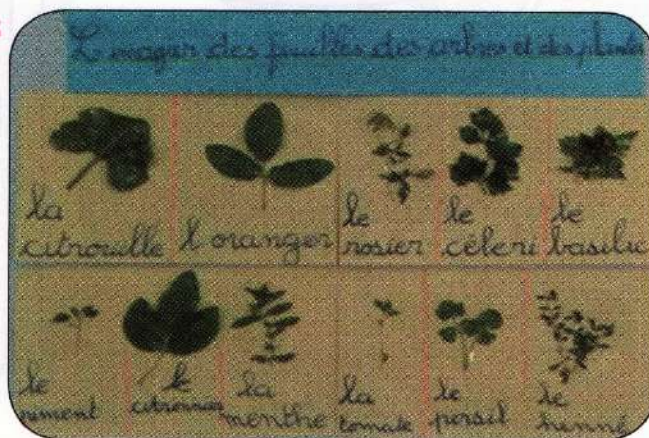 L'imagier des feuilles des arbres et des plantes
la citrouille
l'oranger
le rosier
le céleri
le basilic
le piment
le citronnier
la menthe
la tomate
le persil
le henné